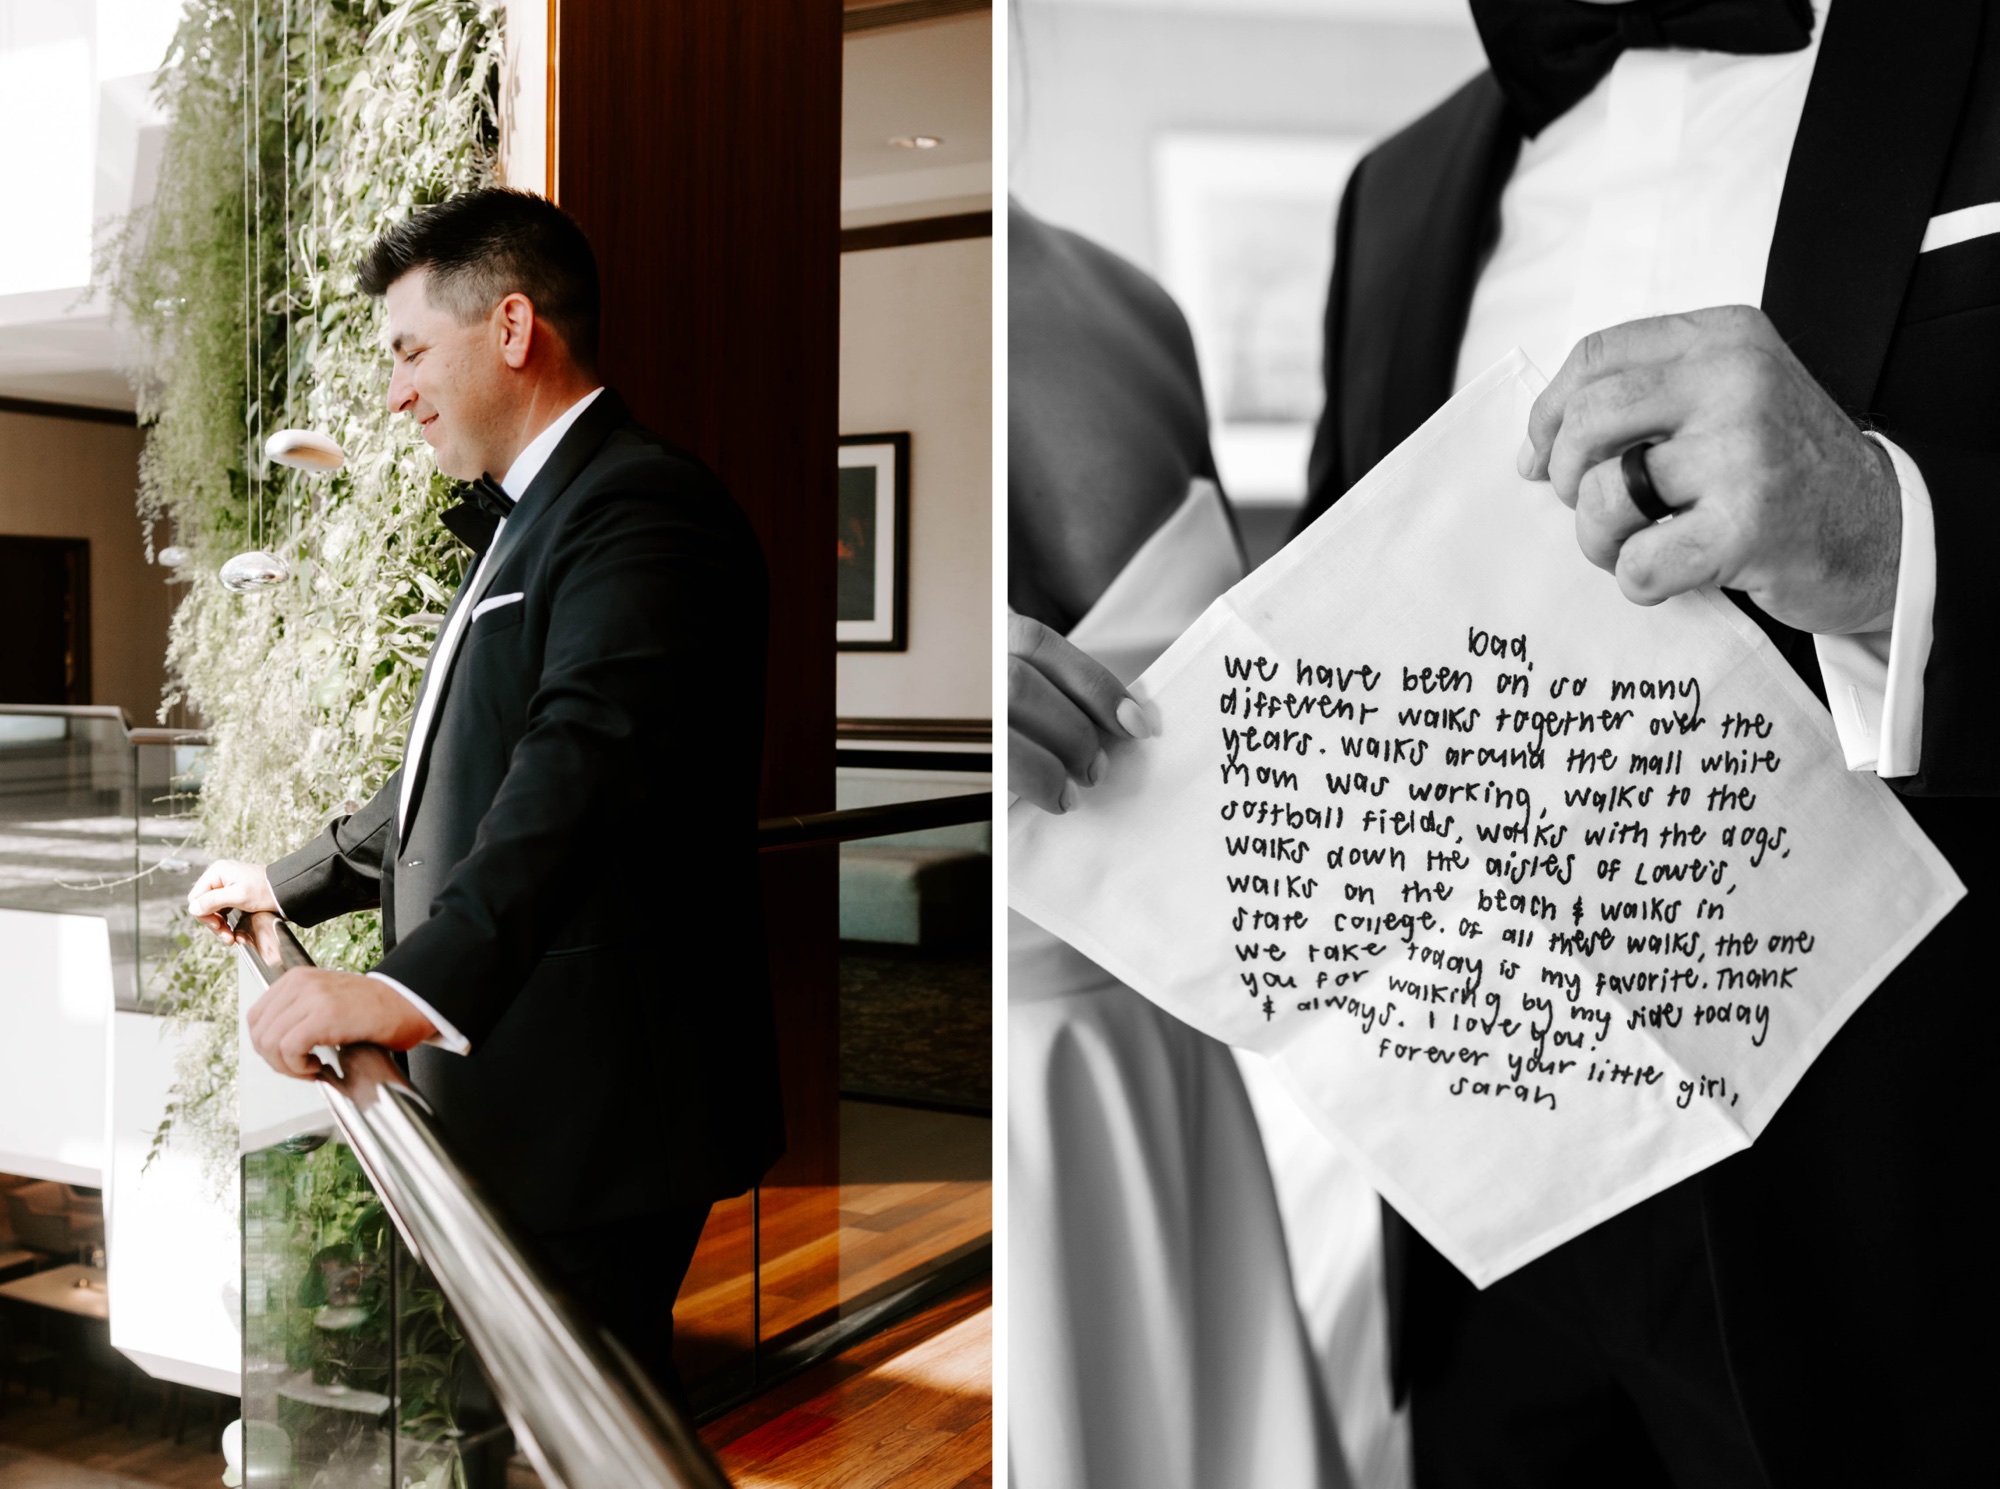 Dad,
we have been on so many
different walks together over the
years. walks around the mall while
mom was working, walks to the
softball fields, walks with the dogs,
walks down the aisles of Lowe's,
walks on the beach & walks in
state college. of all these walks, the one
we take today is my favorite. Thank
you for walking by my side today
& always. I love you.
forever your little girl,
sarah